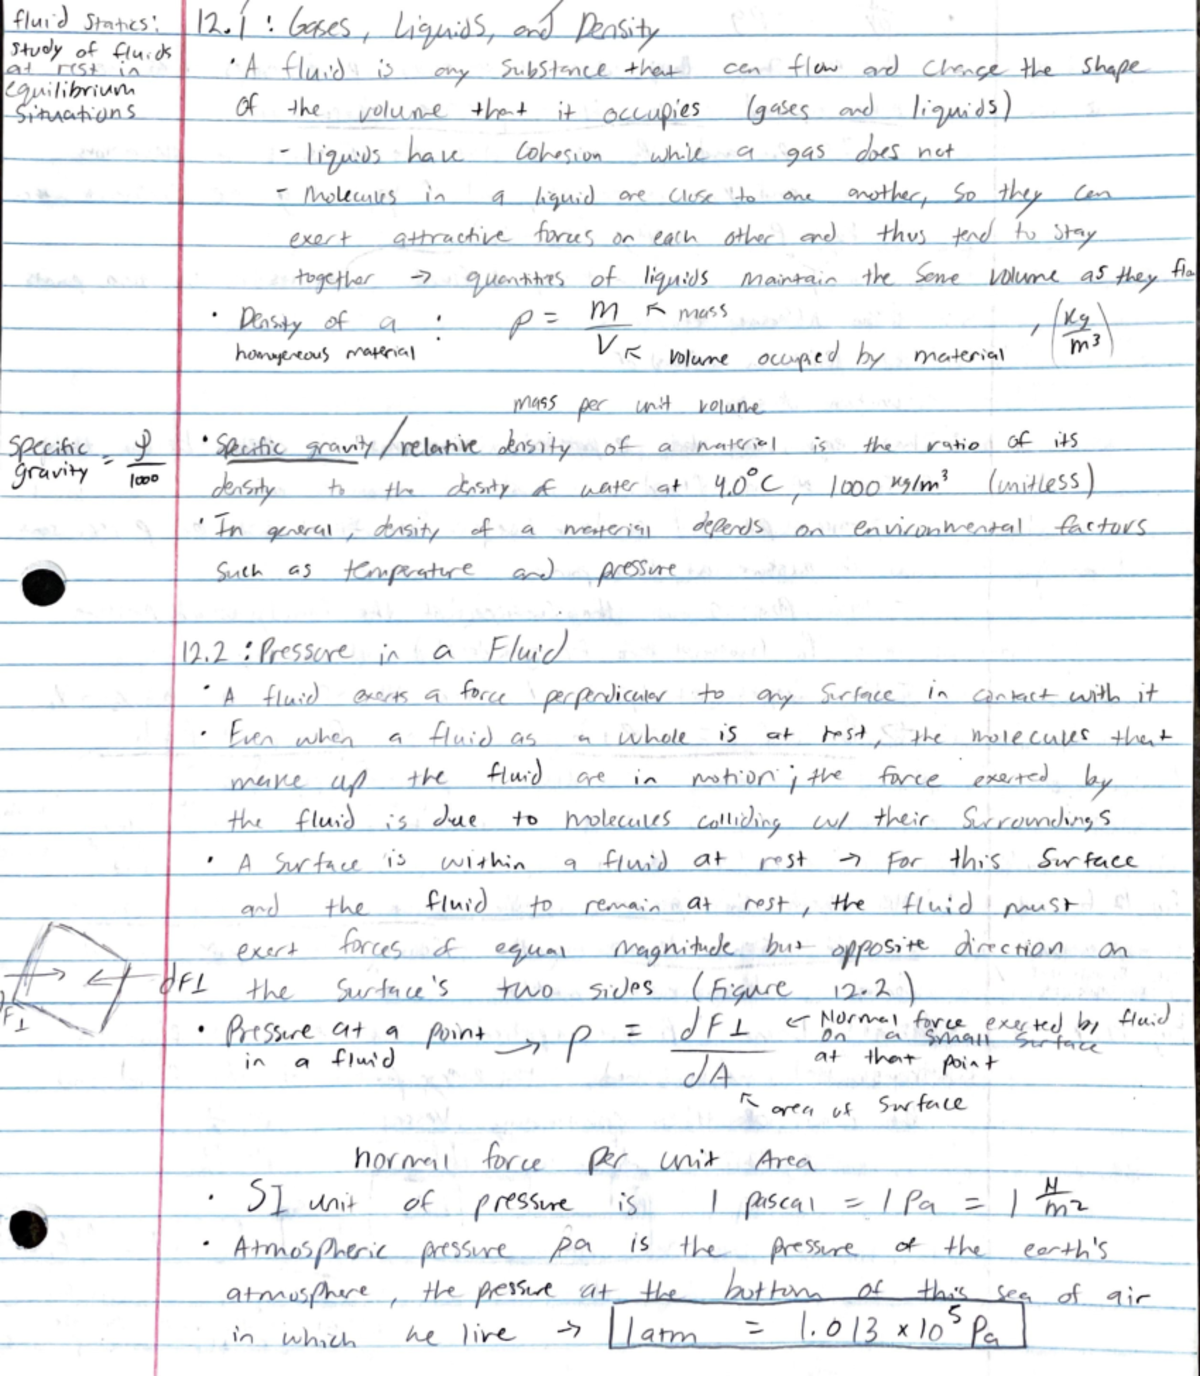 fluid statics:
study of fluids
at rest in
equilibrium
situations
12.1 : Gases, Liquids, and Density
• A fluid is any substance that can flow and change the shape
of the volume that it occupies (gases and liquids)
- liquids have cohesion while a gas does not
- molecules in a liquid are close to one another, so they can
exert attractive forces on each other and thus tend to stay
together → quantities of liquids maintain the same volume as they flo
• Density of a homogeneous material : ρ = m/V , (kg/m³)
↖ mass
↖ volume occupied by material
mass per unit volume
specific gravity = ρ/1000
• Specific gravity/relative density of a material is the ratio of its
density to the density of water at 4.0°C, 1000 kg/m³ (unitless)
• In general, density of a material depends on environmental factors
such as temperature and pressure
12.2 : Pressure in a Fluid
• A fluid exerts a force perpendicular to any surface in contact with it
• Even when a fluid as a whole is at rest, the molecules that
make up the fluid are in motion; the force exerted by
the fluid is due to molecules colliding w/ their surroundings
• A surface is within a fluid at rest → For this surface
and the fluid to remain at rest, the fluid must
exert forces of equal magnitude but opposite direction on
the surface's two sides (Figure 12.2)
dF⊥
F⊥
• Pressure at a point in a fluid → p = dF⊥/dA
← Normal force exerted by fluid
on a small surface
at that point
↖ area of surface
normal force per unit Area
• SI unit of pressure is 1 pascal = 1 Pa = 1 N/m²
• Atmospheric pressure pa is the pressure of the earth's
atmosphere, the pressure at the bottom of this sea of air
in which we live → 1 atm = 1.013 × 10⁵ Pa